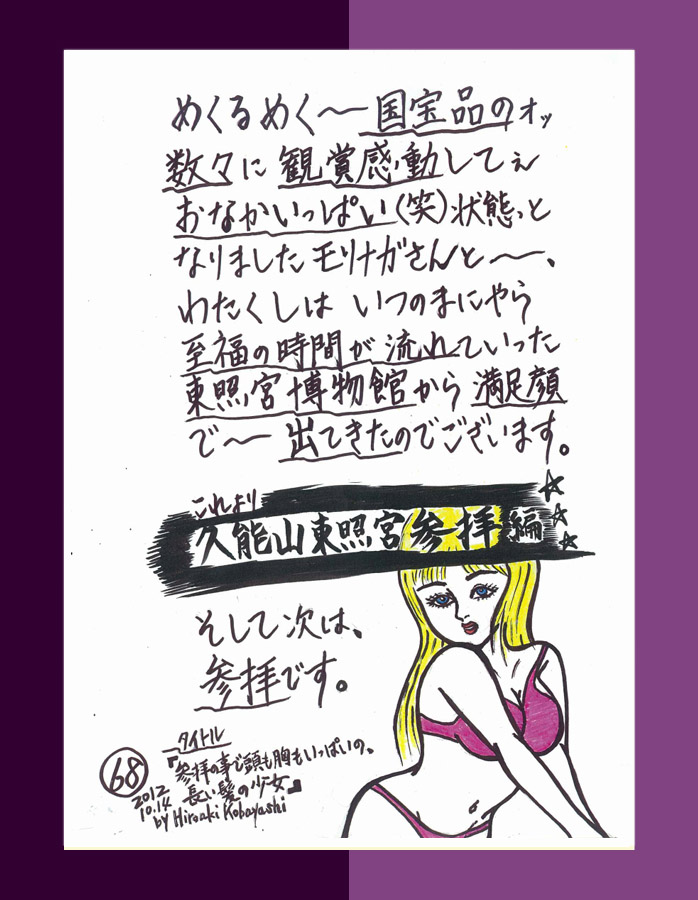 めくるめく〜国宝品のォッ
数々に観賞感動してぇ
おなかいっぱい(笑)状態、と
なりましたモリナガさんと〜、
わたくしは いつのまにやら
至福の時間が流れていった
東照宮博物館から満足顔
で〜出てきたのでございます。
これより
久能山東照宮参拝編
そして次は、
参拝です。
タイトル
『参拝の事で頭も胸もいっぱいの、
長い髪の少女』
68
2012
10.14
by Hiroaki Kobayashi